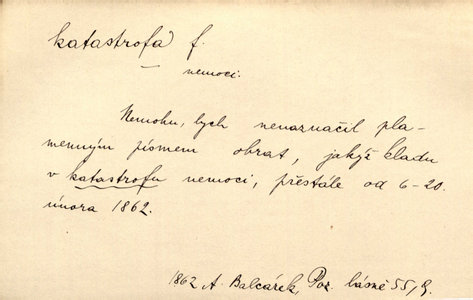 katastrofa f.
— nemoci.
Nemohu, bych nenaznačil pla-
menným písmem obrat, jakýž kladu
v katastrofu nemoci, přestálé od 6-20.
února 1862.
1862 A. Balcárek, Poz. básně 55,